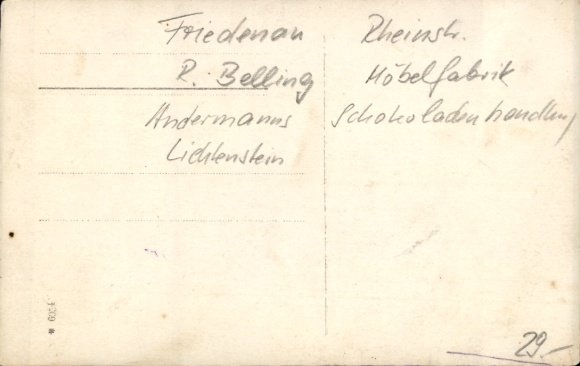 Friedenau Rheinstr.
R. Belling Möbelfabrik
Andermanns Schokoladenhandlung
Lichtenstein
29.-